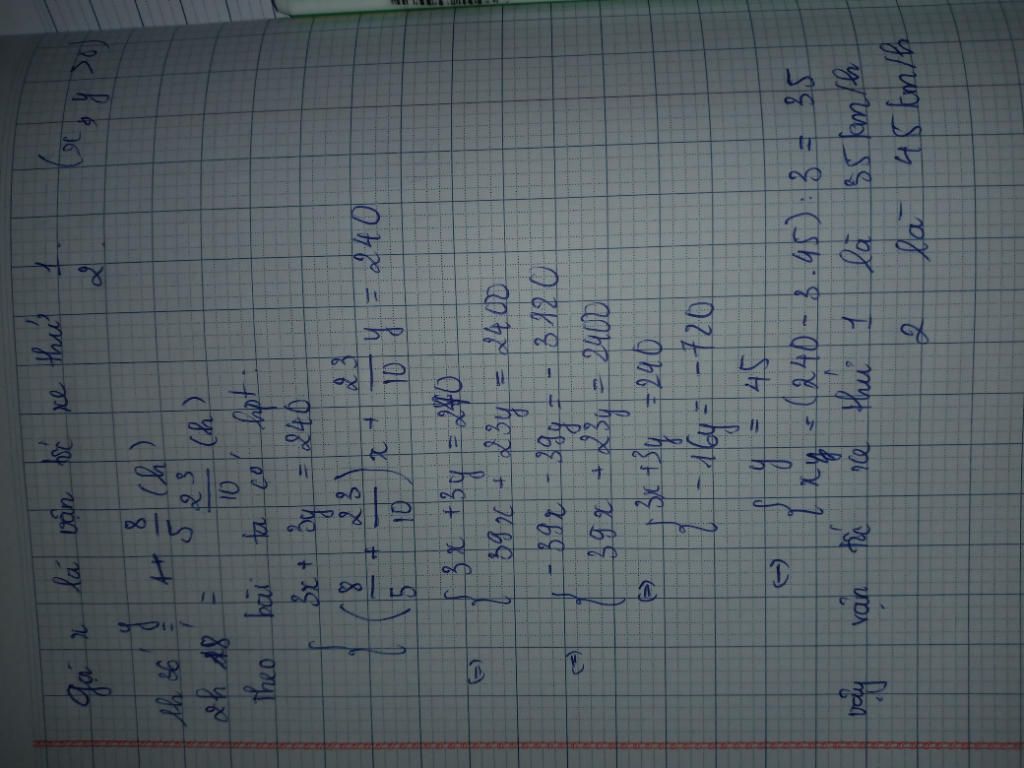 Gọi x là vận tốc xe thứ 1 (x, y > 0)
y 2
1h 36' = 8/5 (h)
2h 18' = 23/10 (h)
Theo bài ta có hpt.
{ 3x + 3y = 240
(8/5 + 23/10)x + 23/10 y = 240
(=) { 3x + 3y = 240
39x + 23y = 2400
(=) { -39x - 39y = -3120
39x + 23y = 2400
(=) { 3x + 3y = 240
-16y = -720
(=) { y = 45
x = (240 - 3.45) : 3 = 35
Vậy vận tốc xe thứ 1 là 35 km/h
2 là 45 km/h